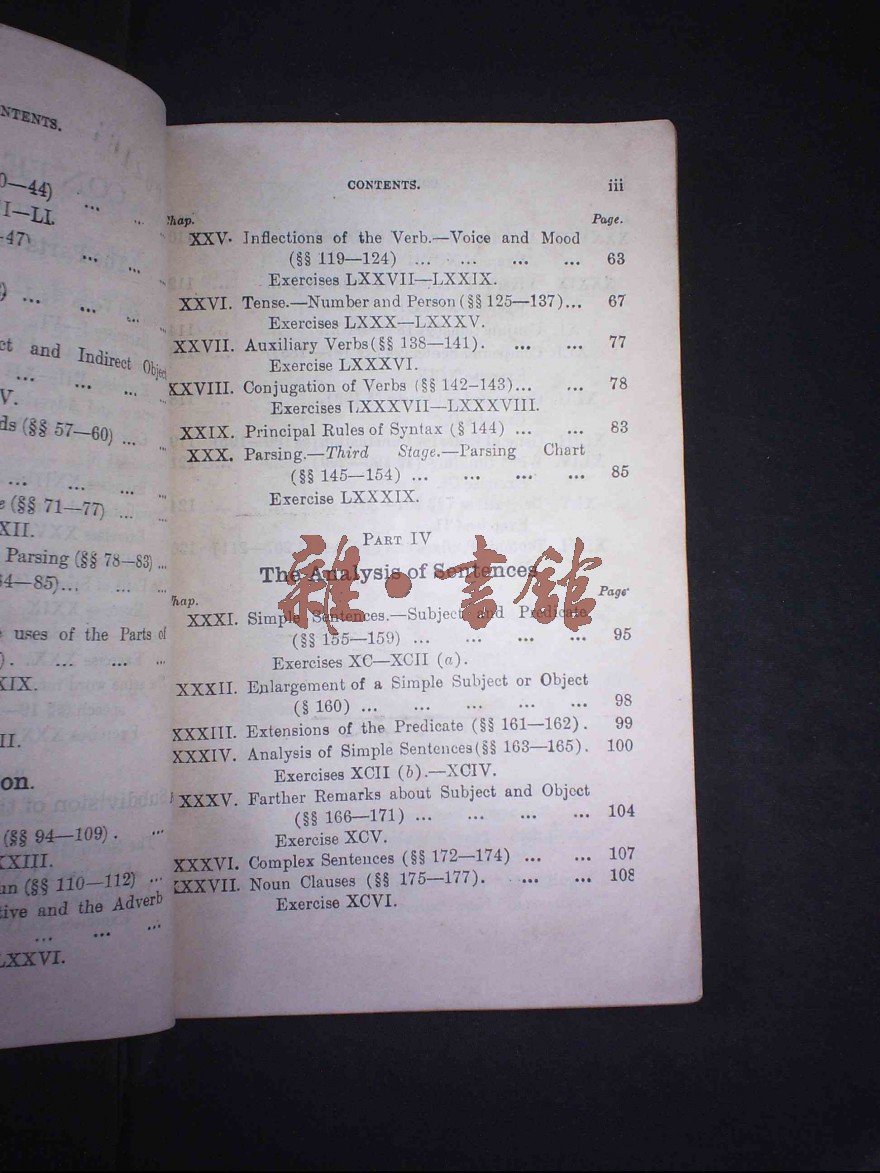 NTENTS.
0—44)
I—LI.
-47)
ct and Indirect Obje
V.
ds (§§ 57—60) ...
e (§§ 71—77) ...
XII.
Parsing (§§ 78—83) ...
34—85)... ... ...
e uses of the Parts of
) . ... ... ...
XIX.
II.
on.
(§§ 94—109) . ...
XXIII.
un (§§ 110—112) ...
tive and the Adverb
LXXVI.
CONTENTS. iii
Chap. Page.
XXV. Inflections of the Verb.—Voice and Mood
(§§ 119—124) ... ... ... ... 63
Exercises LXXVII—LXXIX.
XXVI. Tense.—Number and Person (§§ 125—137)... 67
Exercises LXXX—LXXXV.
XXVII. Auxiliary Verbs (§§ 138—141). ... ... 77
Exercise LXXXVI.
XXVIII. Conjugation of Verbs (§§ 142–143)... ... 78
Exercises LXXXVII—LXXXVIII.
XXIX. Principal Rules of Syntax (§ 144) ... ... 83
XXX. Parsing.—Third Stage.—Parsing Chart
(§§ 145—154) ... ... ... ... 85
Exercise LXXXIX.
PART IV
The Analysis of Sentences
雜·書館
Chap. Page
XXXI. Simple Sentences.—Subject and Predicate
(§§ 155—159) ... ... ... ... 95
Exercises XC—XCII (a).
XXXII. Enlargement of a Simple Subject or Object
(§ 160) ... ... ... ... ... 98
XXXIII. Extensions of the Predicate (§§ 161—162). 99
XXXIV. Analysis of Simple Sentences (§§ 163—165). 100
Exercises XCII (b).—XCIV.
XXXV. Farther Remarks about Subject and Object
(§§ 166—171) ... ... ... ... 104
Exercise XCV.
XXXVI. Complex Sentences (§§ 172—174) ... ... 107
XXXVII. Noun Clauses (§§ 175—177). ... ... 108
Exercise XCVI.